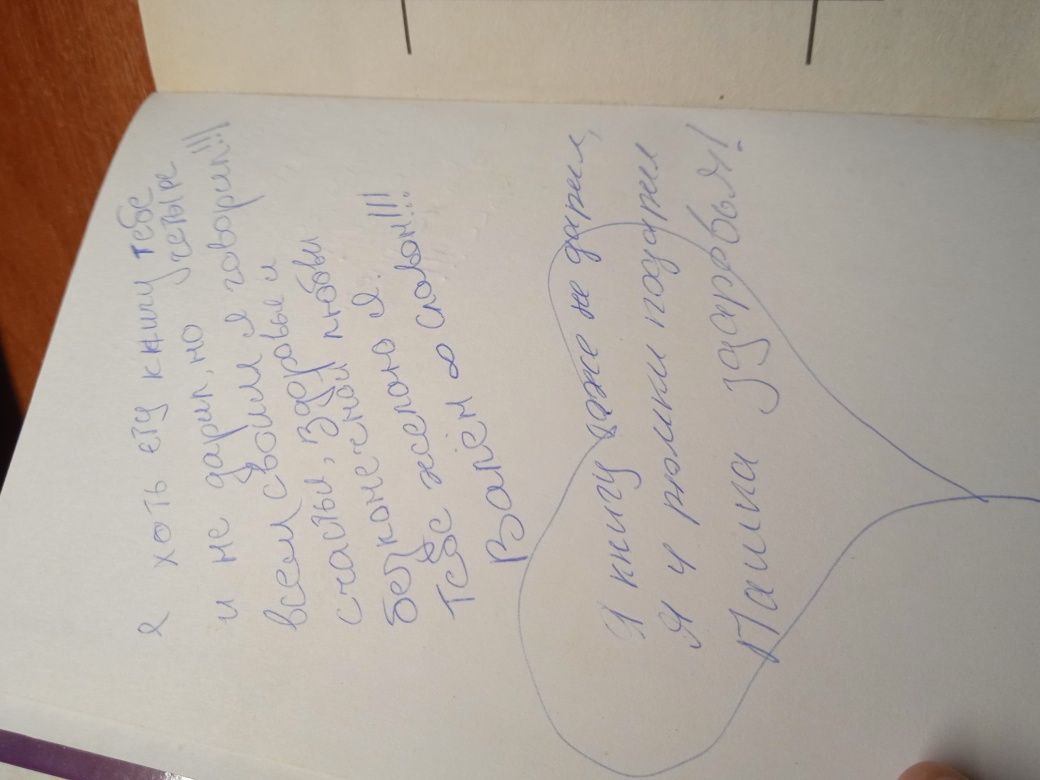 я хоть ету книгу тебе
и не дарил, но четыре
всем своим я говорил!!!
счастья, здоровье и
безконечной любви
тебе желаю я.
тебе ∞ словом!!!
Я книгу даже не дарил,
Я 4 рюмки подарил
Пашка здаровья!